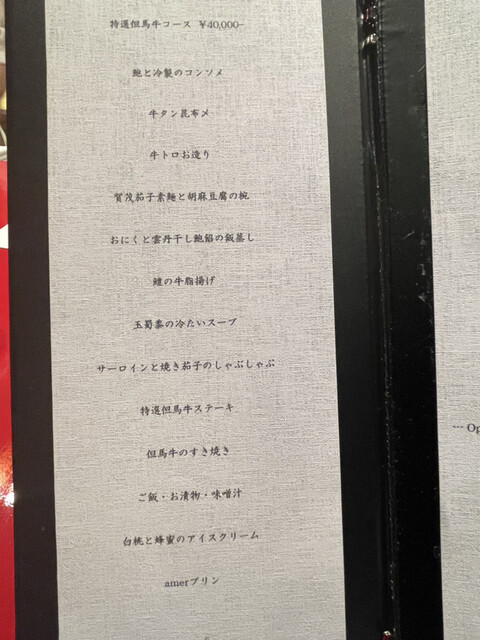 特選但馬牛コース ¥40,000-
鮑と冷製のコンソメ
牛タン昆布〆
牛トロお造り
賀茂茄子素麺と胡麻豆腐の椀
おにくと雲丹干し鮑餡の飯蒸し
鱧の牛脂揚げ
玉蜀黍の冷たいスープ
サーロインと焼き茄子のしゃぶしゃぶ
特選但馬牛ステーキ
但馬牛のすき焼き
ご飯・お漬物・味噌汁
白桃と蜂蜜のアイスクリーム
amerプリン
--- Op